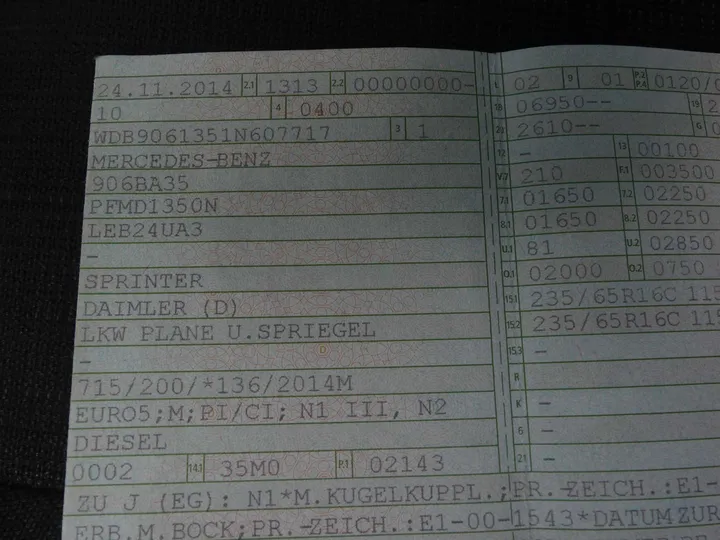 24.11.2014 2.1 1313 2.2 00000000-
10 4 0400
WDB9061351N607717 3 1
MERCEDES-BENZ
906BA35
PFMD1350N
LEB24UA3
-
SPRINTER
DAIMLER (D)
LKW PLANE U.SPRIEGEL
-
715/200/*136/2014M
EURO5;M;PI/CI; N1 III, N2
DIESEL
0002 14.1 35M0 P.1 02143
L 02 9 01 P.2 P.4 0120/
18 06950-- 19 2
20 2610-- G
12 - 13 00100
V.7 210 F.1 003500
7.1 01650 7.2 02250
8.1 01650 8.2 02250
U.1 81 U.2 02850
O.1 02000 O.2 0750
15.1 235/65R16C 115
15.2 235/65R16C 115
15.3 -
R
K -
6 -
21 -
ZU J (EG): N1*M.KUGELKUPPL.;PR.-ZEICH.:E1-
ERB.M.BOCK;PR.-ZEICH.:E1-00-1543*DATUM ZUR